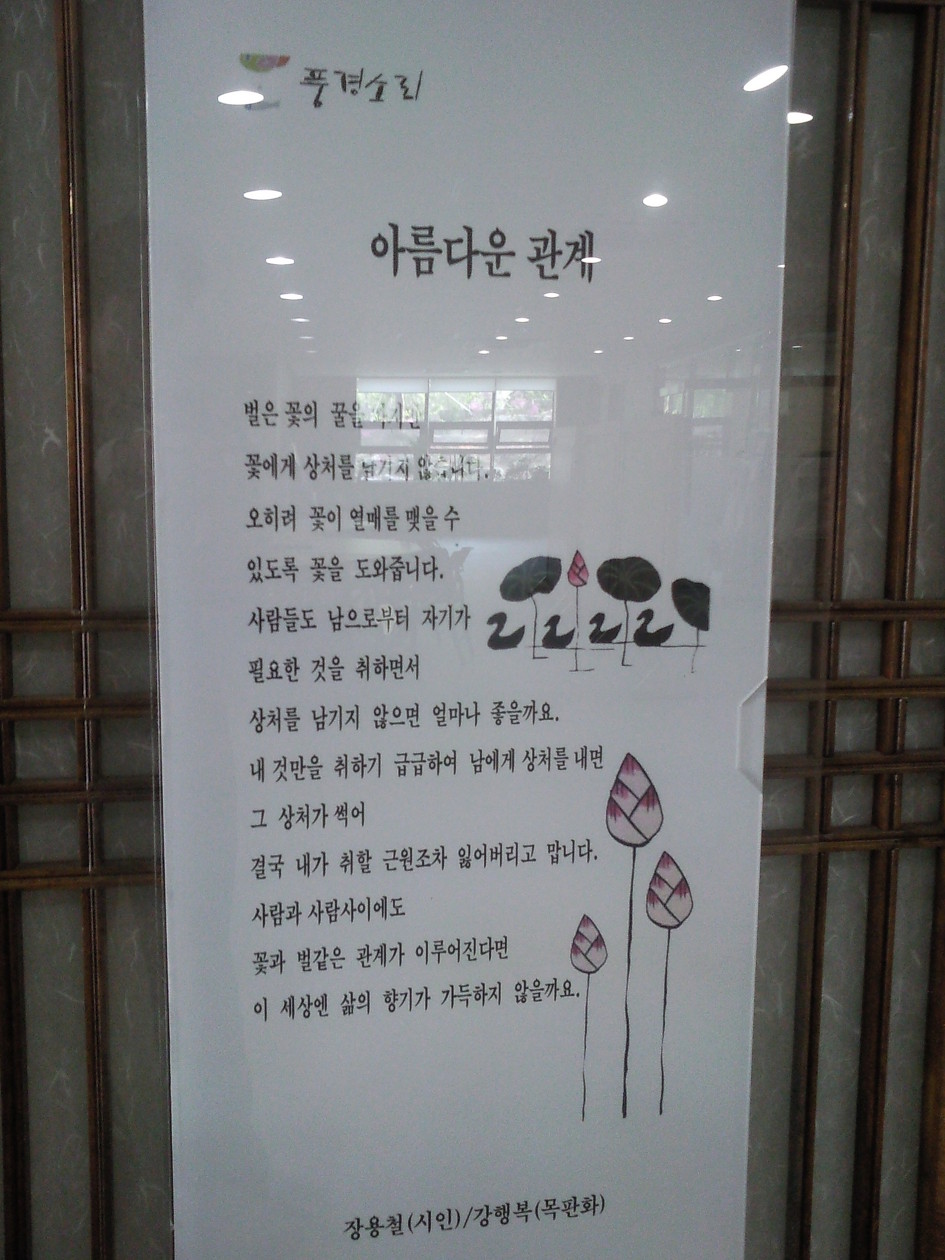 풍경소리
아름다운 관계
벌은 꽃의 꿀을
꽃에게 상처를 남기지 않습니다.
오히려 꽃이 열매를 맺을 수
있도록 꽃을 도와줍니다.
사람들도 남으로부터 자기가
필요한 것을 취하면서
상처를 남기지 않으면 얼마나 좋을까요.
내 것만을 취하기 급급하여 남에게 상처를 내면
그 상처가 썩어
결국 내가 취할 근원조차 잃어버리고 맙니다.
사람과 사람사이에도
꽃과 벌같은 관계가 이루어진다면
이 세상엔 삶의 향기가 가득하지 않을까요.
장용철(시인)/강행복(목판화)